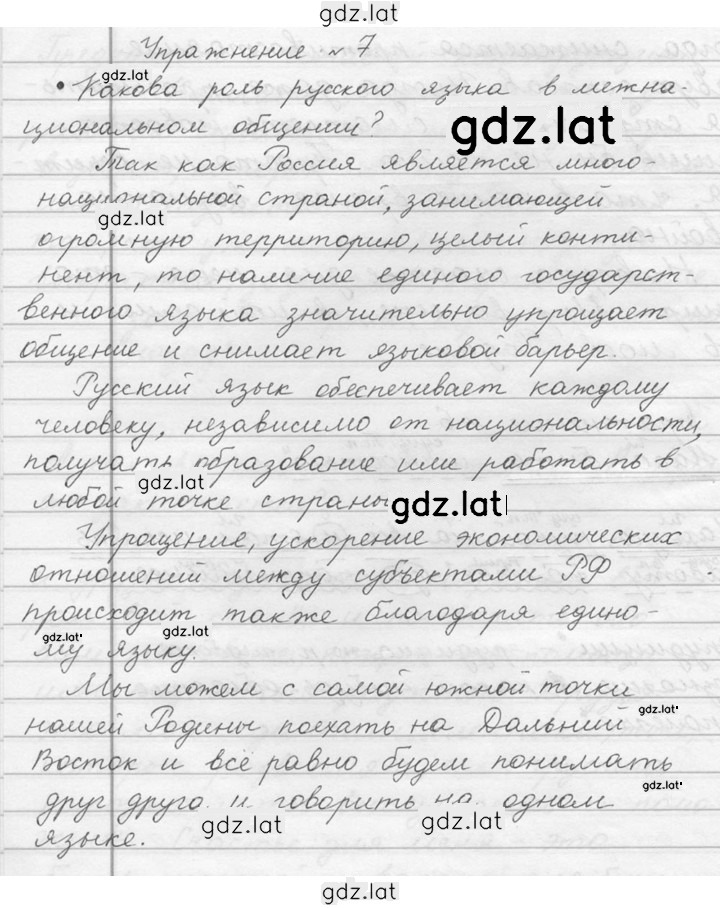 gdz.lat
Упражнение № 7
gdz.lat
• Какова роль русского языка в межна-
циональном общении?
gdz.lat
Так как Россия является много-
национальной страной, занимающей
gdz.lat
огромную территорию, целый конти-
нент, то наличие единого государст-
венного языка значительно упрощает
общение и снимает языковой барьер.
Русский язык обеспечивает каждому
человеку, независимо от национальности,
получать образование или работать в
gdz.lat
любой точке страны
gdz.lat
Упрощение, ускорение экономических
отношений между субъектами РФ
происходит также благодаря едино-
gdz.lat
gdz.lat
му языку.
Мы можем с самой южной точки
gdz.lat
нашей Родины поехать на Дальний
Восток и всё равно будем понимать
gdz.lat
друг друга и говорить на одном
gdz.lat
gdz.lat
языке.
gdz.lat